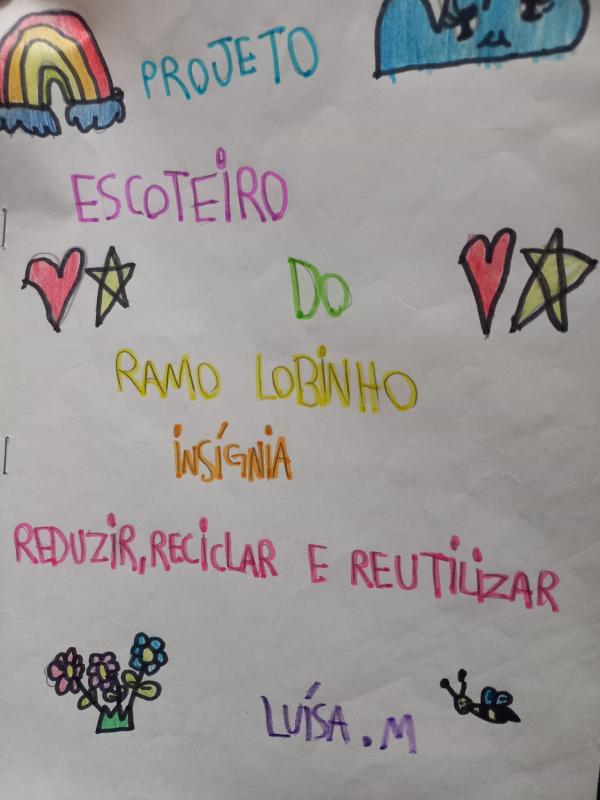 PROJETO
ESCOTEIRO
DO
RAMO LOBINHO
INSÍGNIA
REDUZIR, RECICLAR E REUTILIZAR
LUÍSA . M